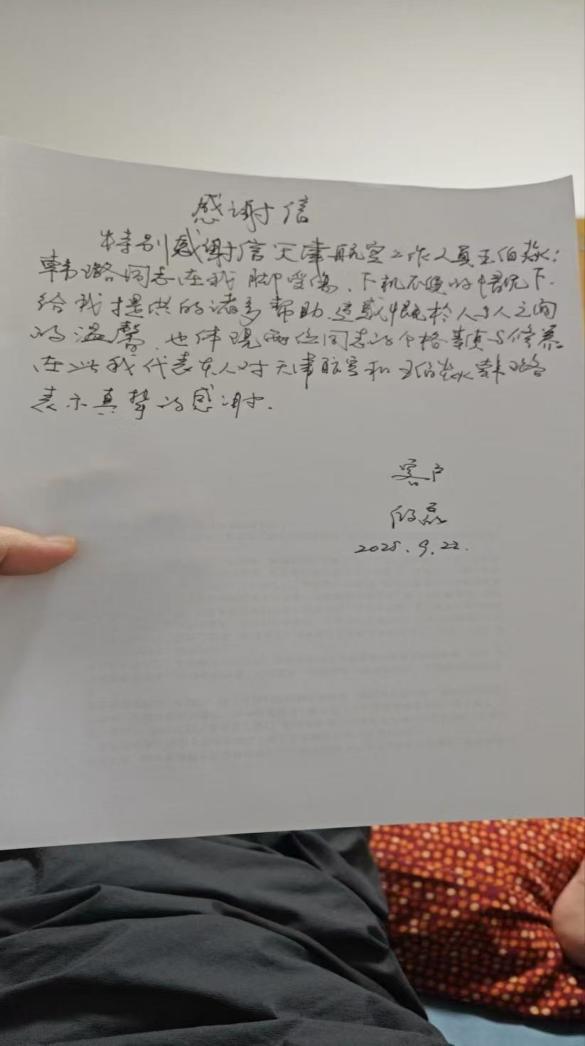 感谢信
特别感谢信天津航空工作人员王伯焱;
韩璐同志在我脚受伤、下机不便的情况下
给我提供的诸多帮助,这载人与人之间
的温馨。也体现两位同志的个格素质与修养
在此我代表本人对天津航空和王伯焱韩璐
表示真挚的感谢。
客户
磊
2025.9.22.